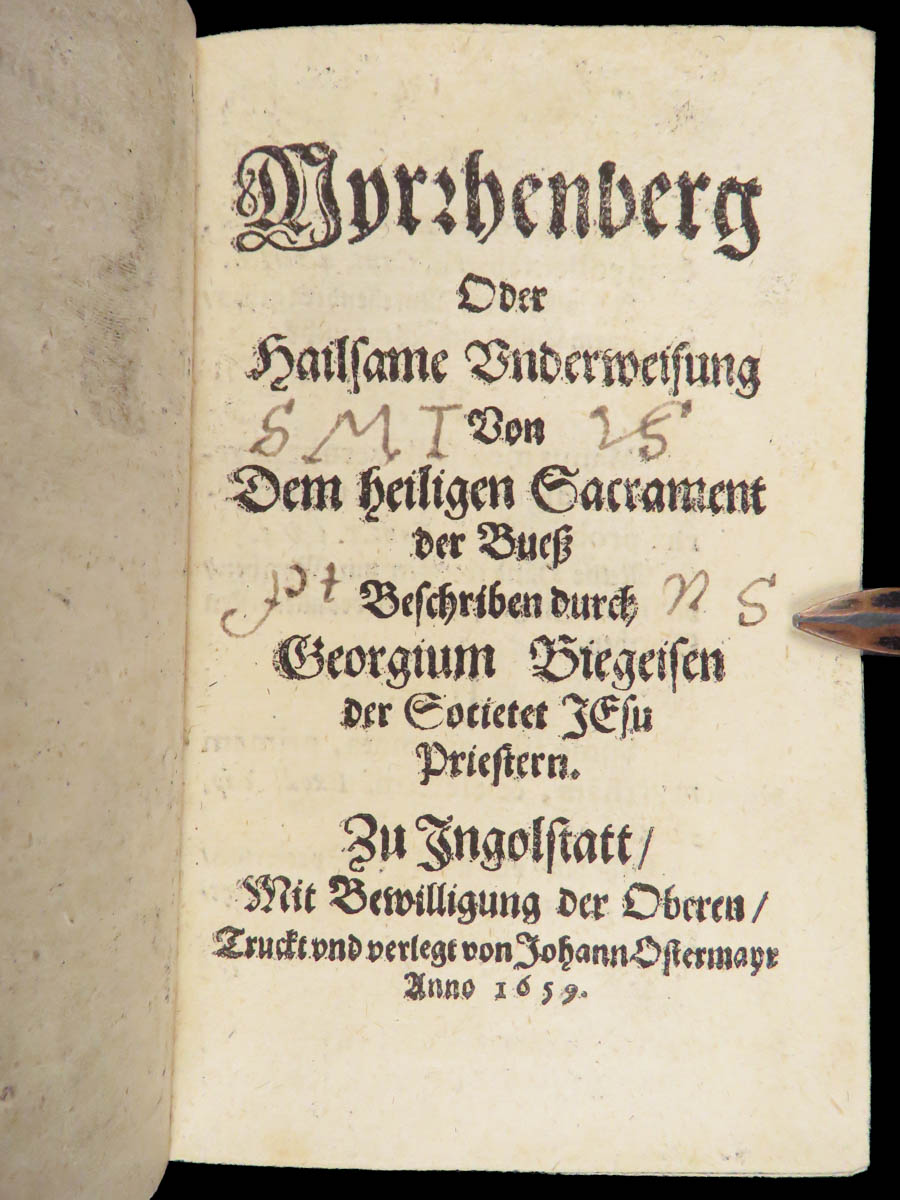 Myrrhenberg
Oder
Hailsame Vnderweisung
S M I Von
Dem heiligen Sacrament
der Bueß
Beschriben durch N S
Georgium Biegeisen
der Societet JEsu
Priestern.
Zu Jngolstatt/
Mit Bewilligung der Oberen/
Truckt vnd verlegt von Johann Ostermayr
Anno 1659.